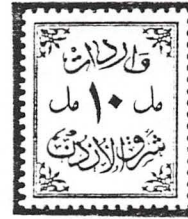 واردات
مل ١٠ مل
شرق الاردن